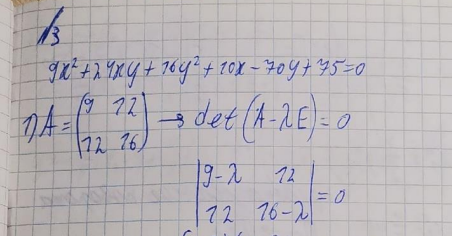 №3
9x²+24xy+16y²+10x-70y+75=0
1) A = (9 12 / 12 16) → det(A-λE)=0
|9-λ 12 / 12 16-λ| = 0